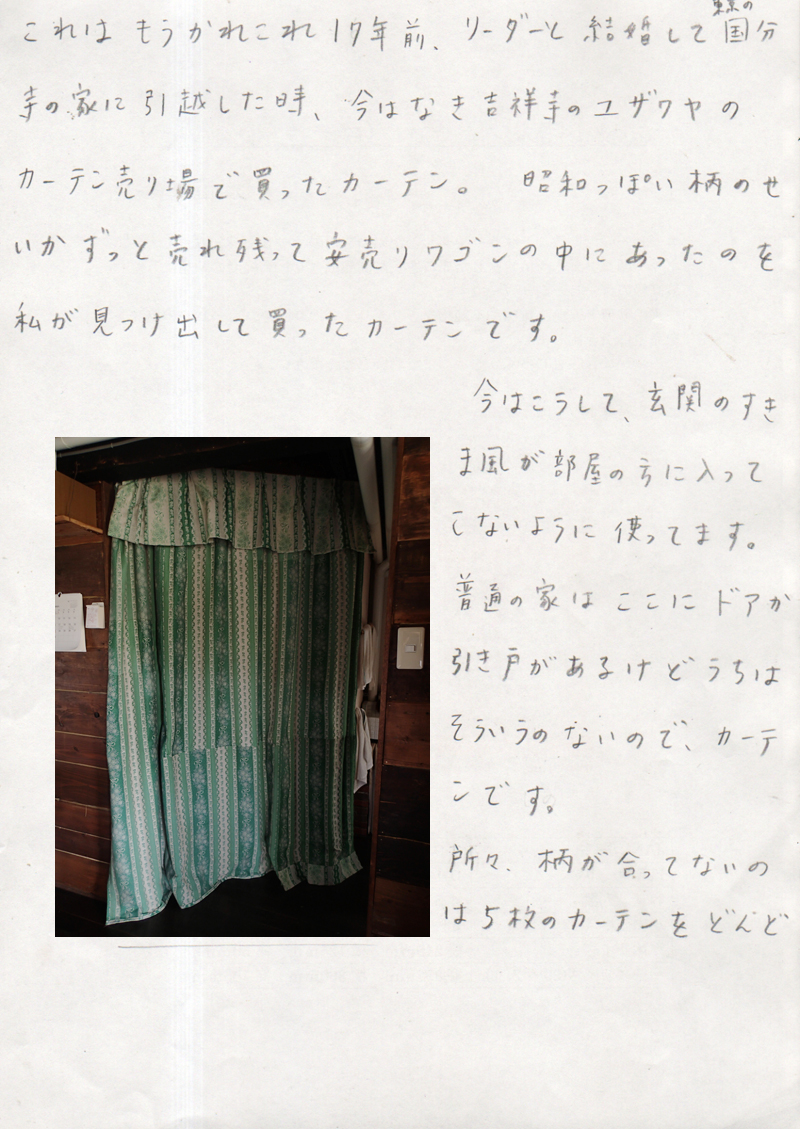 これはもうかれこれ17年前、リーダーと結婚して東京の国分
寺の家に引越した時、今はなき吉祥寺のユザワヤの
カーテン売り場で買ったカーテン。 昭和っぽい柄のせ
いかずっと売れ残って安売りワゴンの中にあったのを
私が見つけ出して買ったカーテンです。
今はこうして、玄関のすき
ま風が部屋の方に入って
こないように使ってます。
普通の家はここにドアか
引き戸があるけどうちは
そういうのないので、カーテ
ンです。
所々、柄が合ってないの
は5枚のカーテンをどんど